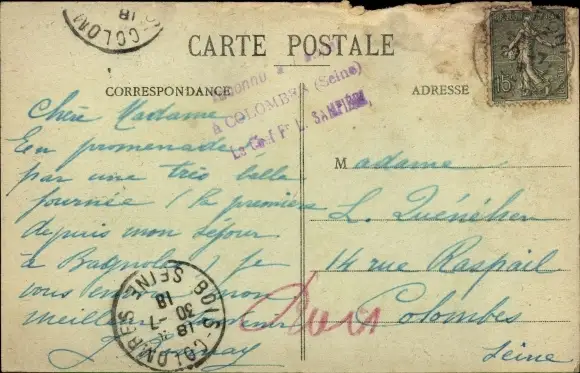 COLOM
18
CARTE POSTALE
CORRESPONDANCE
ADRESSE
15c
à COLOMBES (Seine)
Le Chef F. L. SAMPIERI
Chère Madame
En promenade
par une très belle
journée (la première
depuis mon séjour
à Bagnoles) je
vous envoie mon
meilleur
Madame
L. Quénéhen
14 rue Raspail
Colombes
Seine
BOIS-COLOMBES SEINE
18
30 -7
18